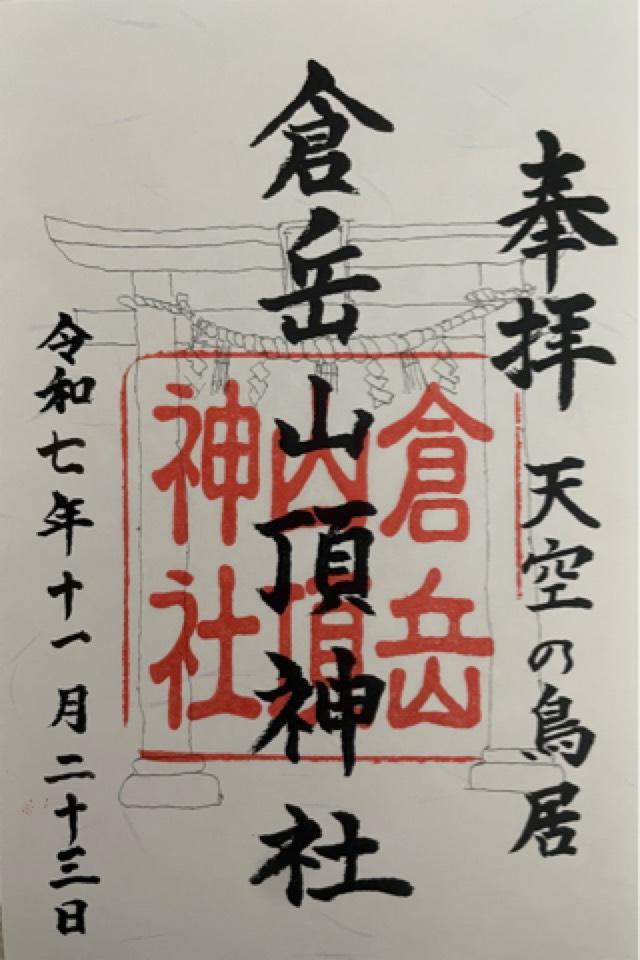 奉拝 天空の鳥居
倉岳山頂神社
令和七年十一月二十三日
倉岳
山頂
神社